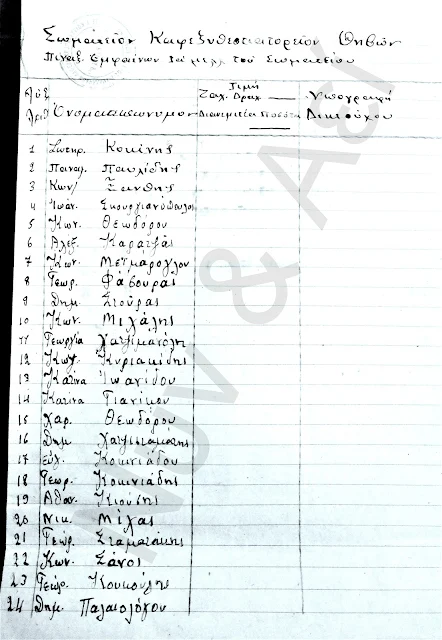 Σωματείον Καφεξυθεστιατορείον Θηβών
Πίναξ Εμφαίνων τα μέλη του Σωματείου
Αύξ Αριθ Ονοματεπώνυμον Τιμή Ζαχ. Δραχ. Διανεμητέα Ποσότης Υπογραφή Δικαιούχου
1 Σωτηρ. Κοκίνης
2 Παναγ. Παυλίδης
3 Κων/ Ξάνθης
4 Ιωάν. Σκουργιανόπουλος
5 Κων. Θεοδόρου
6 Αλεξ. Καρατζάς
7 Κων. Μετμάρογλου
8 Γεωρ. Φάσουρας
9 Δημ. Στούρας
10 Κων. Μιχάλης
11 Γεωργία Χατζιμανόλη
12 Κων. Κυριακίδης
13 Κατίνα Ιωανίδου
14 Κατίνα Γιανίκου
15 Χαρ. Θεοδόρου
16 Δημ Χατζισταμάτης
17 Ευλ. Κοκινιάδου
18 Γεωρ. Κοκινιάδης
19 Αθαν. Κιούσης
20 Νικ. Μίχας
21 Γεωρ. Σταματάκης
22 Κων. Σάνος
23 Γεώρ. Κουκούλης
24 Δημ. Παλαιολόγου
INOY & A&I